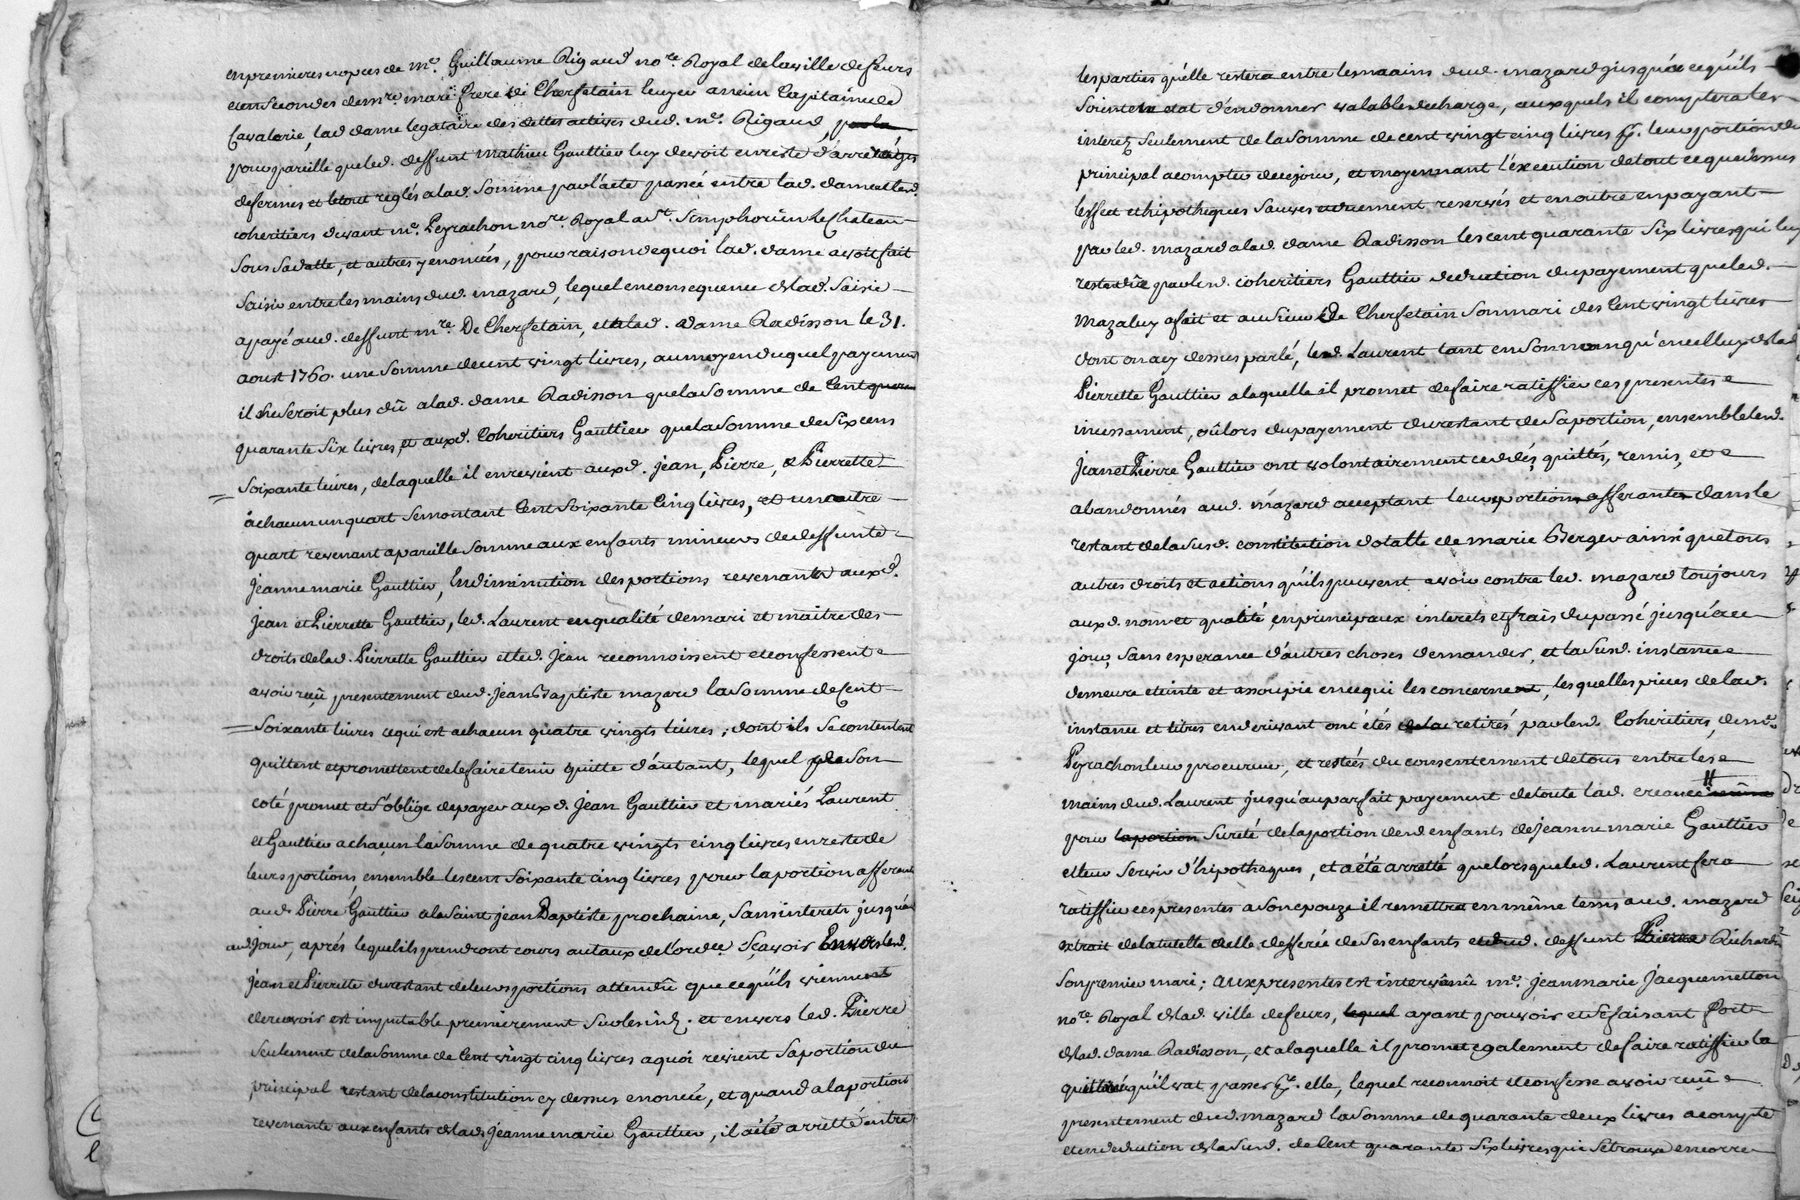 en premieres nopces de me. Guillaume Rigaud nore. Royal de la ville de feurs
et en secondes de mre. marc frere De Chersetain Ecuyer ancien Capitaine de
Cavalerie, lad dame legataire des dettes actives dud. me. Rigaud,
pour pareille que led. deffunt mathieu Gauttier luy devoit en reste d'arrerages
de fermes et le tout reglés a lad. Somme par l'acte passé entre lad. dame et lesd.
coheritiers devant me. Peyrachon nore. Royal a St. Simphorien le Chateau
Sous Sa datte, et autres y enoncés, pour raison de quoi lad. dame avoit fait
Saisir entre les mains dud. mazard, lequel en consequence de lad. Saisie
a payé aud. deffunt mre. De Chersetain, et a lad. dame Radisson le 31.
aoust 1760. une Somme de cent vingt livres, au moyen duquel payement
il ne Seroit plus dû a lad. dame Radisson que la Somme de Cent
quarante Six livres, et auxd. Coheritiers Gauttier que la Somme de Six cens
Soixante livres, de laquelle il en revient auxd. jean, Pierre, & Pierrette
a chacun un quart Se montant Cent Soixante Cinq livres, et un autre
quart revenant a pareille Somme aux enfants mineurs de deffunte
jeanne marie Gauttier, En diminution des portions revenants auxd.
jean et Pierrette Gauttier, led. Laurent en qualité de mari et maitre des
droits de lad. Pierrette Gauttier et led. jean reconnoissent et confessent
avoir reçû presentement dud. jean Baptiste mazard la Somme de Cent
Soixante livres ce qui est a chacun quatre vingts livres; dont ils Se contentent
quittent et promettent de le faire tenir quitte d'autant, lequel de Son
coté promet et S'oblige de payer aux d. jean Gauttier et mariés Laurent
et Gauttier a chacun la Somme de quatre vingts cinq livres en reste de
leurs portions ensemble les cent Soixante cinq livres pour la portion afferante
aud. Pierre Gauttier a la Saint jean Baptiste prochaine, Sans interets jusqu'a
aud. jour, aprés lequel ils prendront cours au taux de l'ordce. Sçavoir Envers lesd.
jean et Pierrette du restant de leurs portions attendû que ce qu'ils viennent
de recevoir est imputable premierement Sur les intz. et envers led. Pierre
Seulement de la Somme de Cent vingt cinq livres a quoi revient Sa portion du
principal restant de la constitution cy dessus enoncée, et quand a la portion
revenante aux enfants de lad. jeanne marie Gauttier, il a été arretté entre
les parties qu'elle restera entre les mains dud. mazard jusqu'a ce qu'ils
Soient en etat d'en donner valable decharge, auxquels il comptera les
interetz Seulement de la Somme de cent vingt cinq livres pr. leur portion du
principal a compter de ce jour, et moyennant l'execution de tout ce que dessus
l'effet et hipotheques Sauves autrement reservés et en outre en payant
par led. mazard a lad. dame Radisson les cent quarante Six livres qui luy
restent dûs par lesd. coheritiers Gauttier deduction du payement que led.
Maza luy a fait et au Sieur De Chersetain Son mari des Cent vingt livres
dont on a cy dessus parlé, led. Laurent tant en Son nom qu'en celluy de lad.
Pierrette Gauttier a laquelle il promet de faire ratiffier ces presentes
incessament, où lors du payement du restant de Sa portion, ensemble lesd.
jean et Pierre Gauttier ont volontairement ceddés, quittés, remis, et
abandonnés aud. mazard acceptant leurs portions afferantes dans le
restant de la Susd. constitution dotalle de marie Berger ainsi que tous
autres droits et actions qu'ils peuvent avoir contre led. mazard toujours
auxd. nom et qualité en principaux interets et frais du passé jusqu'a ce
jour, Sans esperance d'autres choses demander, et la Susd. instance
demeure eteinte et assoupie en ce qui les concernent, lesquelles pieces de lad.
instance et titres en derivant ont étés retirés par lesd. Coheritiers, de me.
Peyrachon leur procureur, et restées du consentement de tous entre les
mains dud. Laurent jusqu'au parfait payement de toute lad. creance
pour la portion Sureté de la portion desd enfants de jeanne marie Gauttier
et leur Servir d'hipotheques, et a été arretté que lorsque led. Laurent fera
ratiffier ces presentes a Son epouze il remettra en même tems aud. mazard
extrait de la tutelle a elle defferée de Ses enfants et dud. deffunt Pierre Richard
Son premier mari; aux presentes est intervenû me. jean marie jacquemetton
nore. Royal de lad. ville de feurs, lequel ayant pouvoir et Se faisant fort
de lad. dame Radisson, et a laquelle il promet egalement de faire ratiffier la
quittance qu'il vat passer pr. elle, lequel reconnoit et confesse avoir reçû
presentement dud. mazard la Somme de quarante deux livres a compte
et en deduction de la Susd. de Cent quarante Six livres qui Se trouve encorre